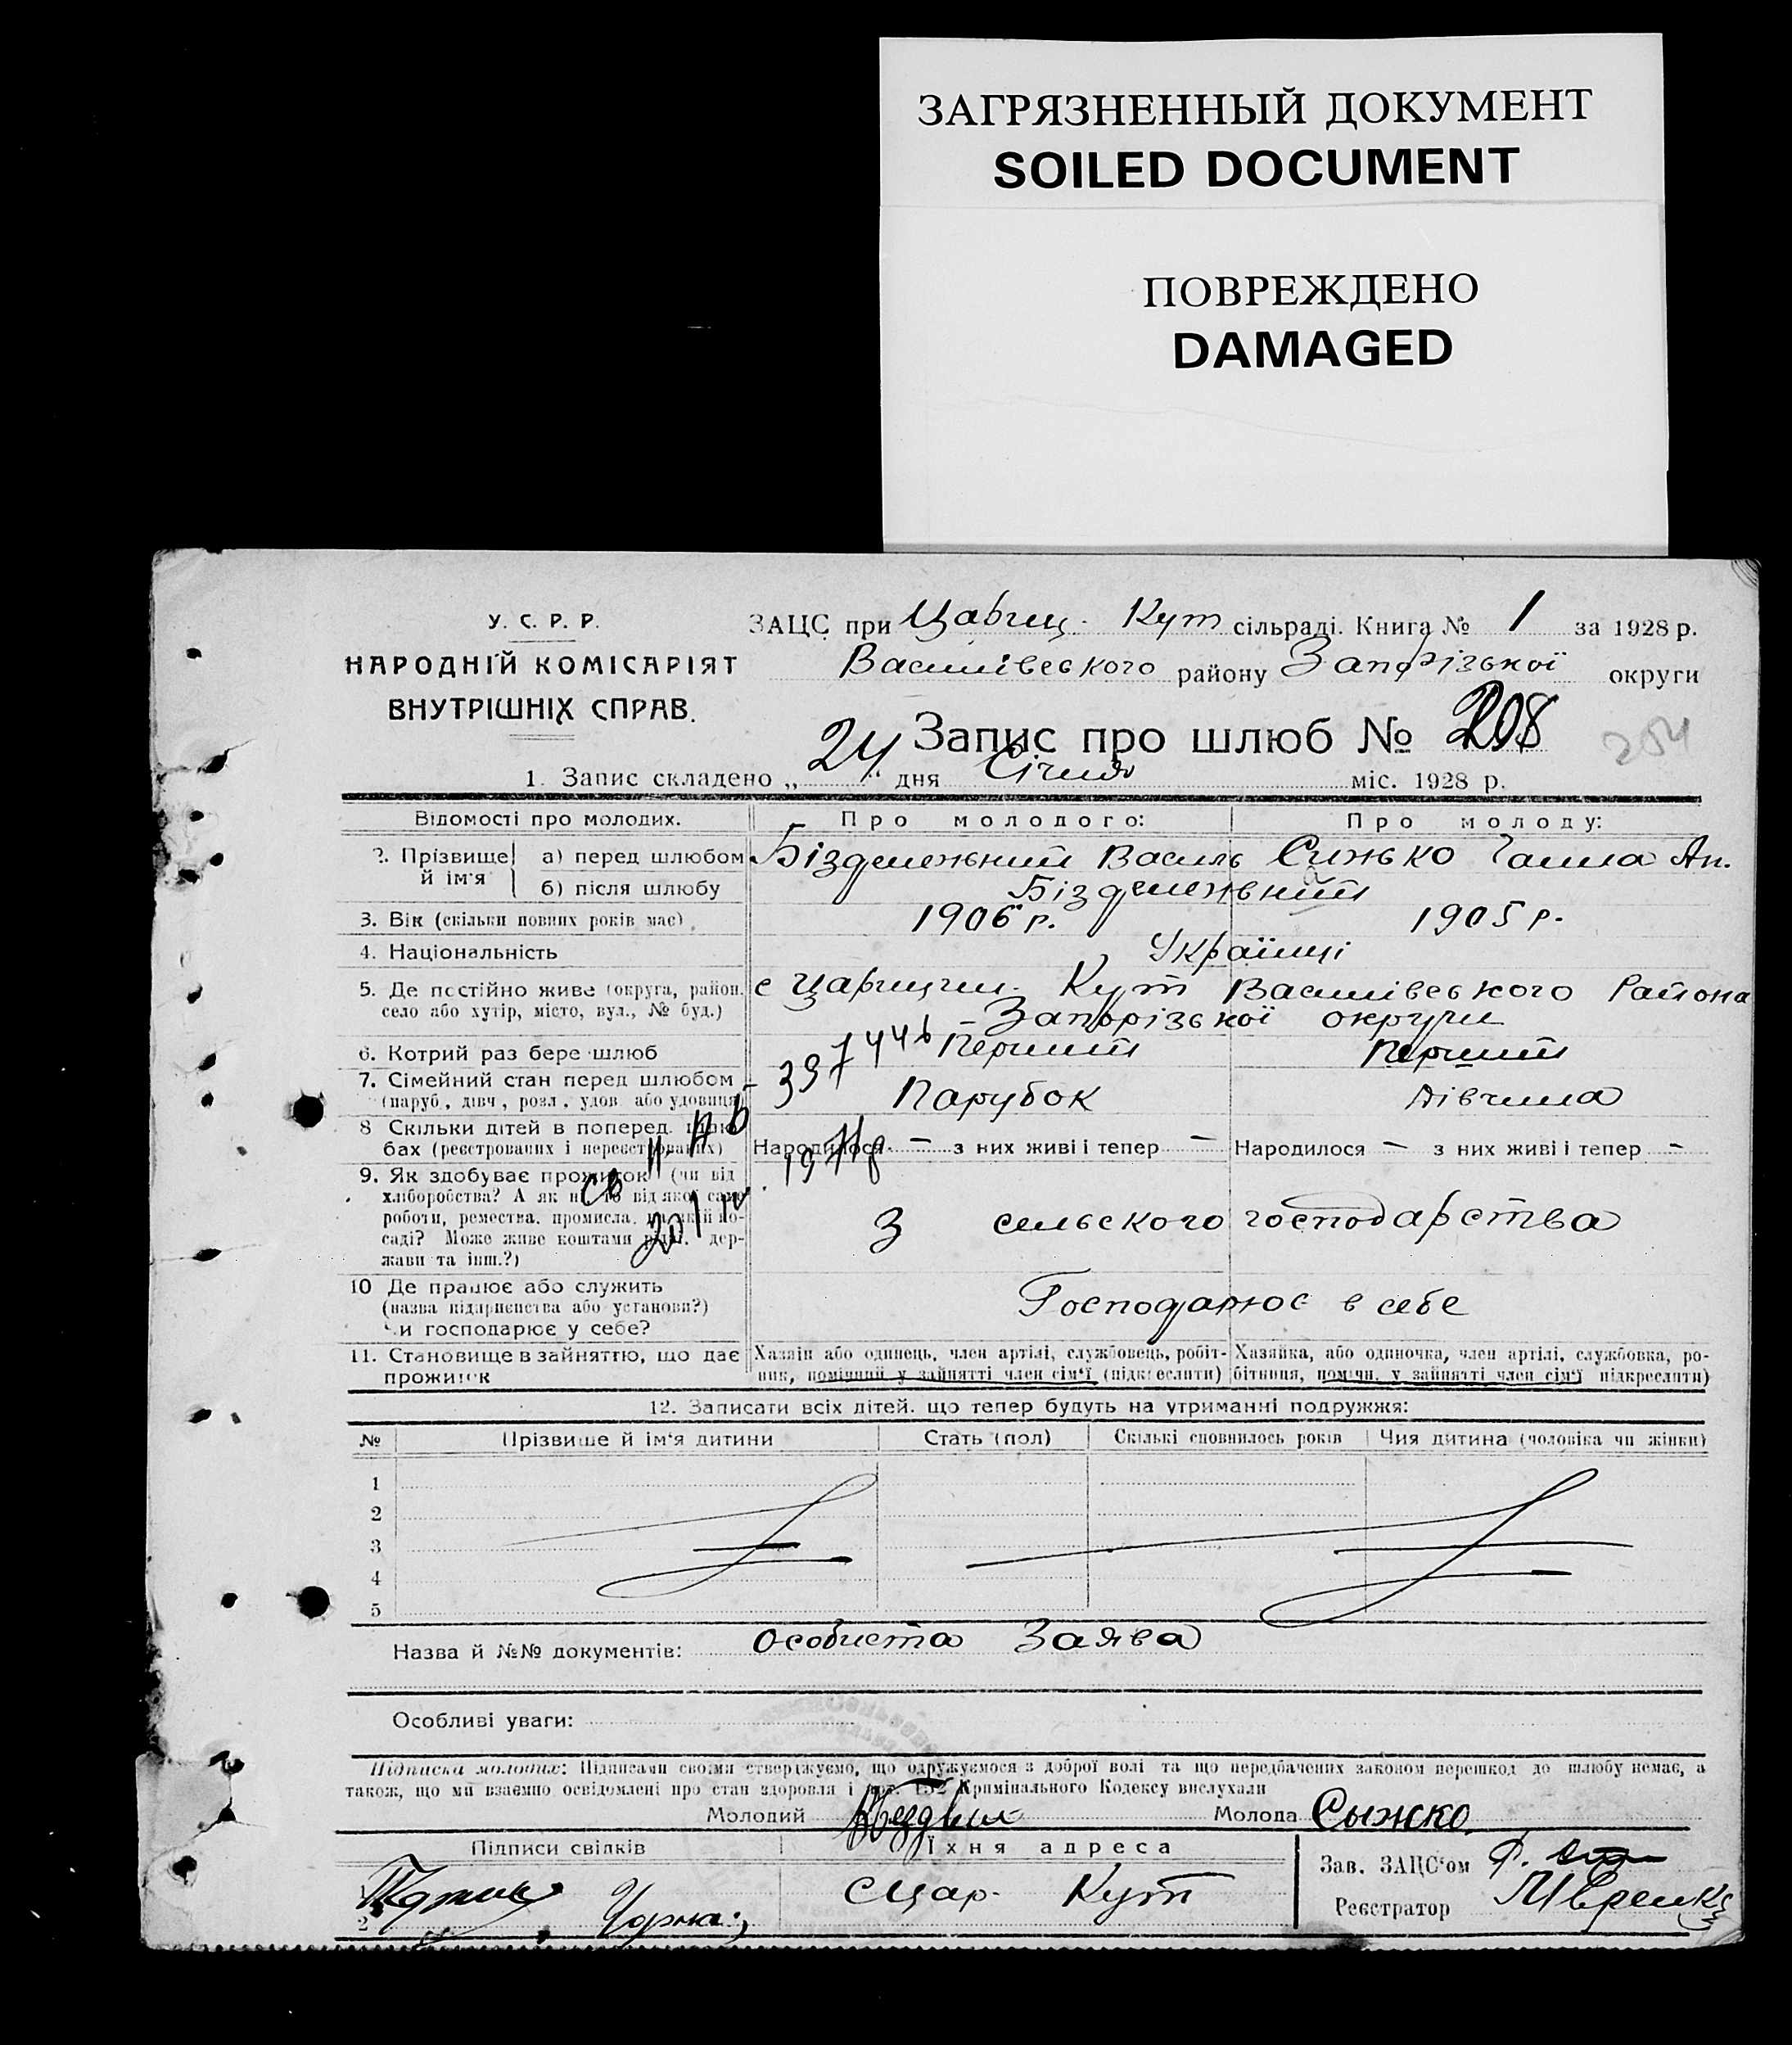 ЗАГРЯЗНЕННЫЙ ДОКУМЕНТ
SOILED DOCUMENT
ПОВРЕЖДЕНО
DAMAGED
У. С. Р. Р.
НАРОДНІЙ КОМІСАРІЯТ
ВНУТРІШНІХ СПРАВ.
ЗАЦС при Цариц. Кут сільраді. Книга № 1 за 1928 р.
Василівського району Запорізької округи
Запис про шлюб № 208
254
1. Запис складено „24“ дня Січня міс. 1928 р.
Відомості про молодих. Про молодого: Про молоду:
2. Прізвище й ім'я а) перед шлюбом Бізденежний Василь Сижько Ганна Ан.
б) після шлюбу Бізденежний
3. Вік (скільки повних років має) 1906 р. 1905 р.
4. Національність Українці
5. Де постійно живе (округа, район, с Царицин. Кут Василівського Района
село або хутір, місто, вул., № буд.) Запорізької округи
6. Котрий раз бере шлюб Перший Перший
7. Сімейний стан перед шлюбом Парубок Дівчина
(паруб., дівч., розл., удов. або удовиця)
8 Скільки дітей в поперед. шлю-
бах (реєстрованих і нереєстрованих) Народилося — з них живі і тепер — Народилося — з них живі і тепер —
9. Як здобуває прожиток (чи від
хліборобства? А як ні, то від якої саме
роботи, ремества, промисла, на якій по-
саді? Може живе коштами рідн. дер-
жави та інш.?)
З сельского господарства
10 Де працює або служить
(назва підприємства або установи?)
Чи господарює у себе?
Господарює в себе
11. Становище в зайняттю, що дає прожиток
Хазяїн або одинець, член артілі, службовець, робіт-
ник, помічний у зайнятті член сім'ї (підкреслити)
Хазяйка, або одиночка, член артілі, службовка, ро-
бітниця, помічн. у зайнятті член сім'ї підкреслити)
12. Записати всіх дітей, що тепер будуть на утриманні подружжя:
№ Прізвище й ім'я дитини Стать (пол) Скількі сповнилось років Чия дитина (чоловіка чи жінки)
1
2
3
4
5
Назва й №№ документів: Особиста Заява
Особливі уваги:
Підписка молодих: Підписами своїми стверджуємо, що одружуємося з доброї волі та що передбачених законом перешкод до шлюбу немає, а
також, що ми взаємно освідомлені про стан здоровля і арт. 152 Кримінального Кодексу вислухали
Молодий Молода Сыжко
Підписи свідків Їхня адреса Зав. ЗАЦС'ом
1
2 Чорна
с Цар. Кут
Реєстратор